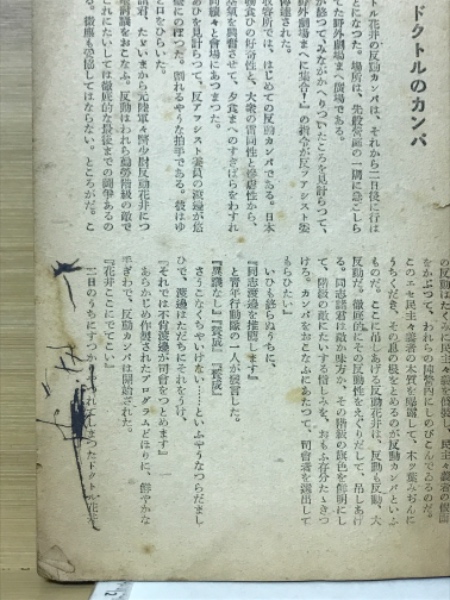 ドクトルのカンパ
トル花井の反動カンパは、それから二日後に行は
とになつた。場所は、先般
てた野外劇場まへ廣場である。
が終つてみながかへりついたころを見計らつて、
野外劇場まへに集合！』の指令が反フアシスト委
傳達された。
收容所では、はじめての反動カンパである。日本
物食ひの好奇性と、大衆の雷同性と
氣を興奮させて、夕食まへのすきばらをわすれ
續々と會場にあつまつた。
のを見計らつて、反フアシスト委員の渡邊が悠
にのぼつた。割れるやうな拍手である。彼はゆ
口をひらいた。
諸君、たゞいまから元陸軍々醫少尉反動花井につ
議をおこなふ。反動はわれら勤勞階級の敵で
これにたいしては徹底的な最後までの鬪爭あるの
微塵も妥協してはならない。ところがだ。こ
の反動はたくみに民主々義を僞裝し、民主々義者の假面
をかぶつて、われらの陣營内にしのびこんでゐるのだ。
このエセ民主々義者の本質を暴露して、木ツ葉みぢんに
うちくだき、その惡の根をとめるのが反動カンパといふ
ものだ。ここに吊しあげる反動花井は、反動も反動、大
反動だ。徹底的にその反動性をえぐりだして、吊しあげ
る。同志諸君は敵か味方か、その階級の旗色を鮮明にし
て、階級の敵にたいする憎しみを、おもふ存分たゝきつ
けろ。カンパをおこなふにあたつて、司會者を選出して
もらひたい』
いひも終らぬうちに、
『同志渡邊を推薦します』
と青年行動隊の一人が發言した。
『異議なし』『賛成』『賛成』
さうこなくちやいけない……といふやうなつらだまし
ひで、渡邊はただちにそれをうけ、
『それでは不肖渡邊が司會をつとめます』
あらかじめ作製されたプログラムどほりに、鮮やかな
手ぎわで、反動カンパは開始された。
『花井ここにでてこい』
一日のうちにすつかり
れてしまつたドクトル花井